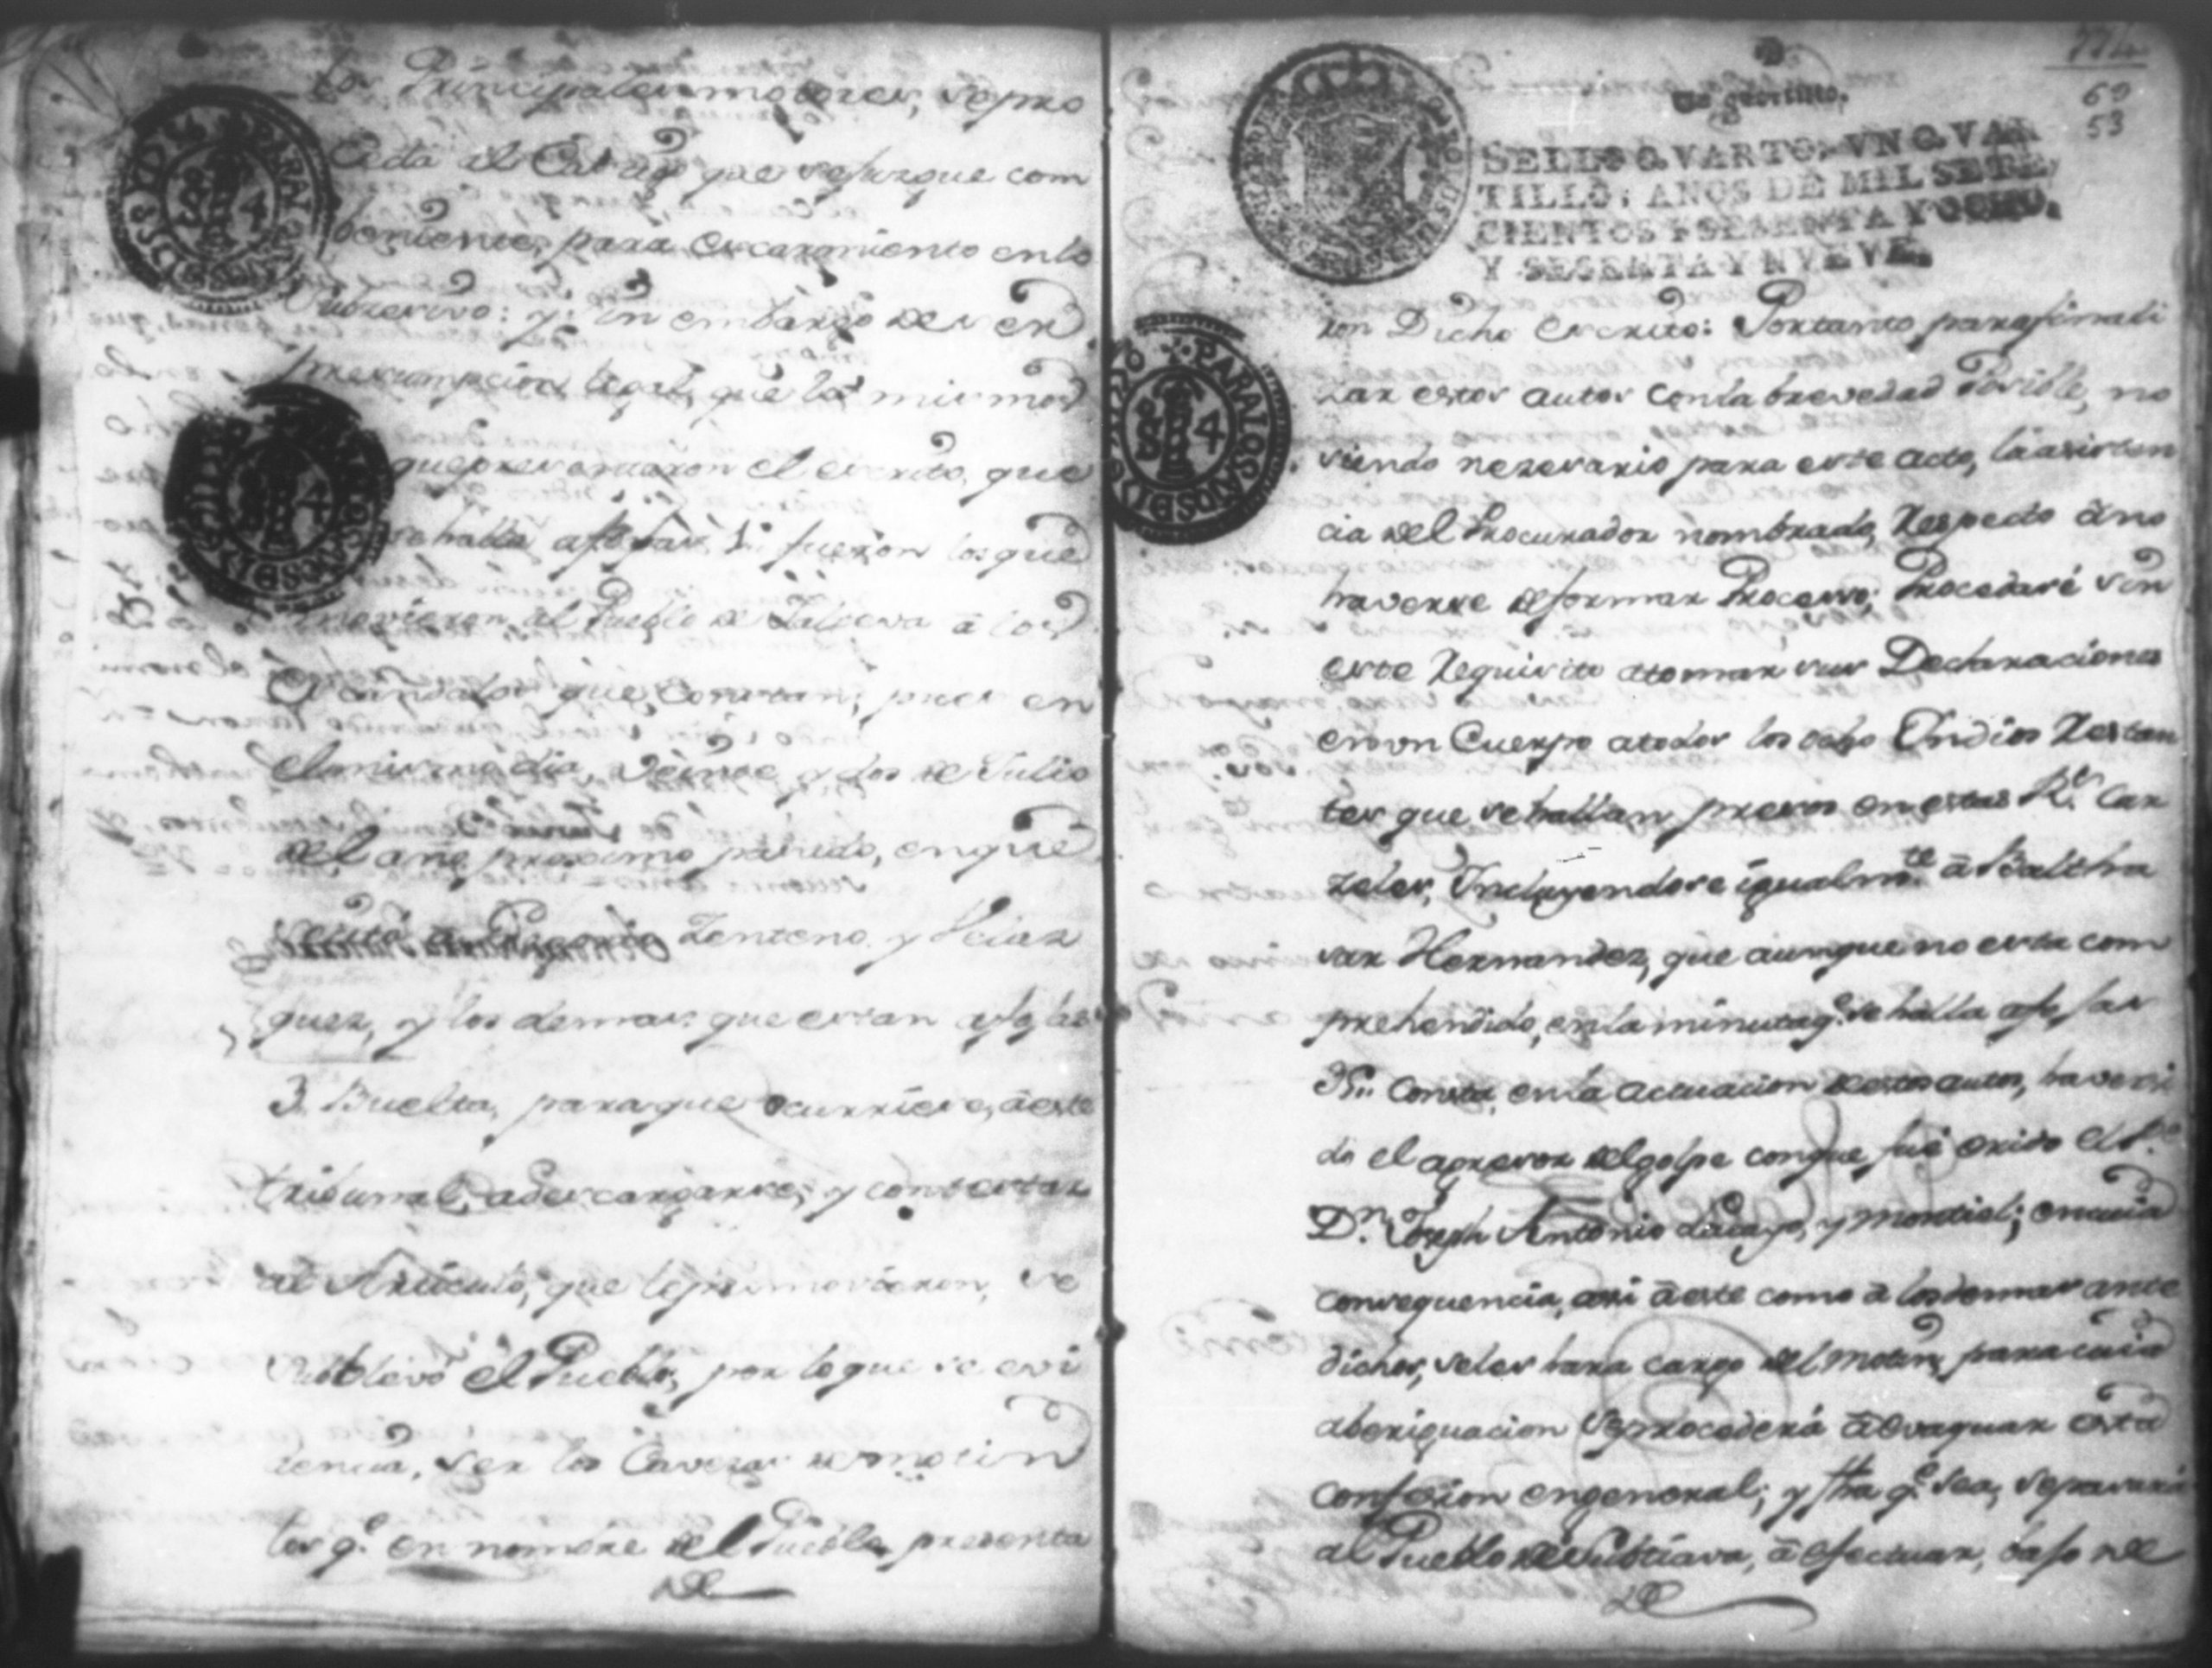 los Principales motores, se pro
ceda al Castigo que se jusgue com
beniente, para escarmiento en lo
subsesivo: y sin embargo de ser
presumpcion legal, que los mismos
que presentaron el escrito, que
se halla a fojas 1ª fueron los que
movieron al Pueblo de Subtiava â los
escandalos que constan; pues en
el mismo dia, veinte y dos de Julio
del año proximo pasado, en que
se citó a Zenteno, y Velaz
quez, y los demas que estan a fojas
3 Buelta, para que ocurriese, â este
tribunal, a descargarse, y contestar
al Articulo, que le promovieron, se
sublevó el Pueblo, por lo que se evi
dencia, ser los Cavezas de motin
los q.e en nombre del Pueblo, presenta
SELLO QVARTO, VN QVAR
TILLO, AÑOS DE MIL SETE
CIENTOS Y SESENTA Y OCHO,
Y SESENTA Y NVEVE.
60
53
PARA LOS AÑOS DE
4
ron Dicho escrito: Portanto para finali
zar estos autos con la brevedad Posible, no
siendo nezesario para este acto, la asisten
cia del Procurador nombrado, Respecto â no
haverse de formar Proceso; Procederé sin
este Requisito a tomar sus Declaraciones
en un Cuerpo a todos los ocho Yndios Restan
tes que se hallan presos en estas R.s Car
zeles, Incluyendose igualm.te â Baltha
sar Hernandez, que aunque no esta com
prehendido, en la minuta q.e se halla a fojas
consta, en la actuacion de estos autos, haver si
do el agresor del golpe con que fué erido el
D.n Joseph Antonio Lacayo, y Montiel; en cuia
consequencia, asi â este como â los demas ante
dichos, se les hara cargo del motin, para cuia
aberiguacion se procederá â evaquar esta
confesion en general; y fha q.e sea, se pasará
al Pueblo de Subtiava, â efectuar, bajo de